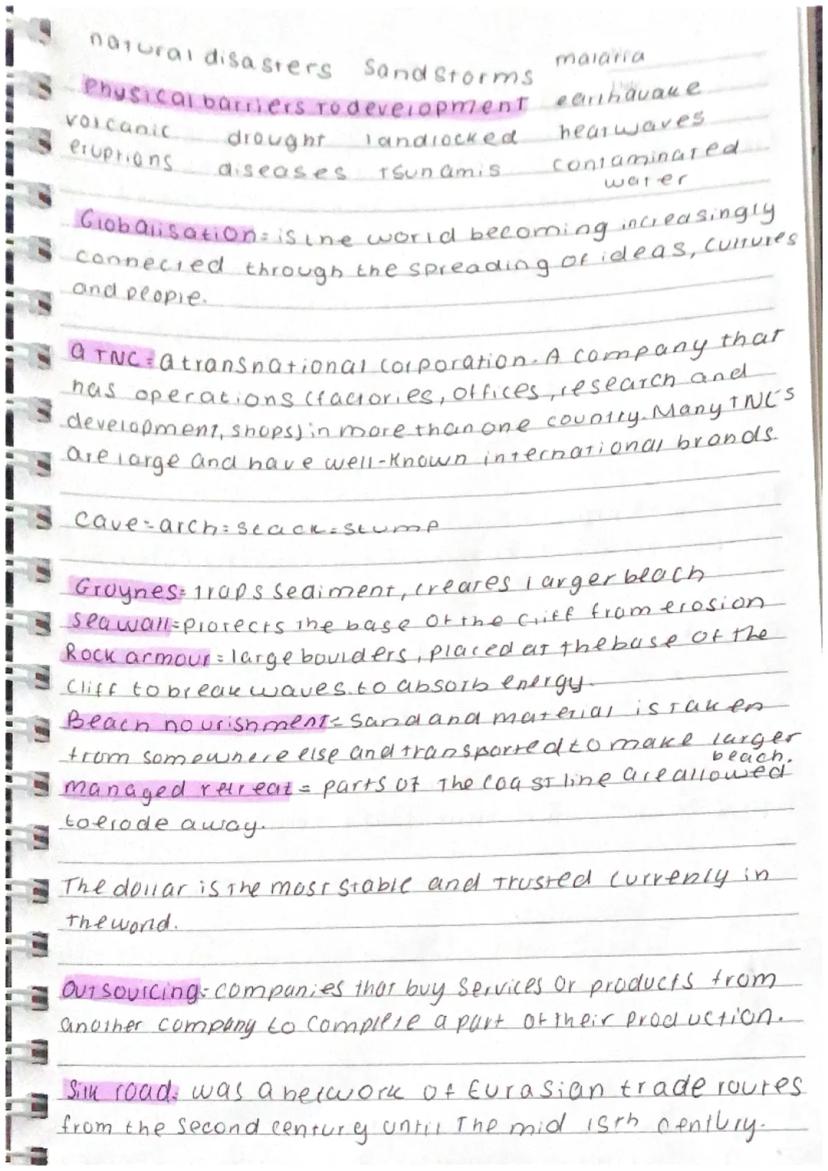 natural disasters sandstorms malaria
Physical barriers to development earthquake
volcanic drought landlocked heatwaves
eruptions diseases tsunamis contaminated
water
Globalisation = is the world becoming increasingly
connected through the spreading of ideas, cultures
and people.
a TNC = a transnational corporation. A company that
has operations (factories, offices, research and
development, shops) in more than one country. Many TNC's
are large and have well-known international brands.
cave = arch = stack = stump
Groynes = traps sediment, creates larger beach
sea wall = protects the base of the cliff from erosion
Rock armour = large boulders, placed at the base of the
cliff to break waves. to absorb energy.
Beach nourishment = sand and material is taken
from somewhere else and transported to make larger
beach.
managed retreat = parts of the coastline are allowed
to erode away.
The dollar is the most stable and trusted currency in
the world.
Outsourcing = companies that buy services or products from
another company to complete a part of their production.
Silk road: was a network of Eurasian trade routes
from the second century until the mid 15th century.